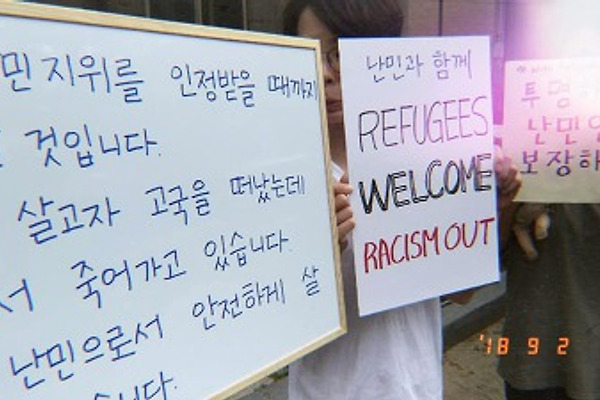 민 지위를 인정받을 때까지
것입니다.
살고자 고국을 떠났는데
서 죽어가고 있습니다.
난민으로서 안전하게 살
습니다.
난민과 함께
REFUGEES
WELCOME
RACISM OUT
투명
난민인
보장하
'18 9 2